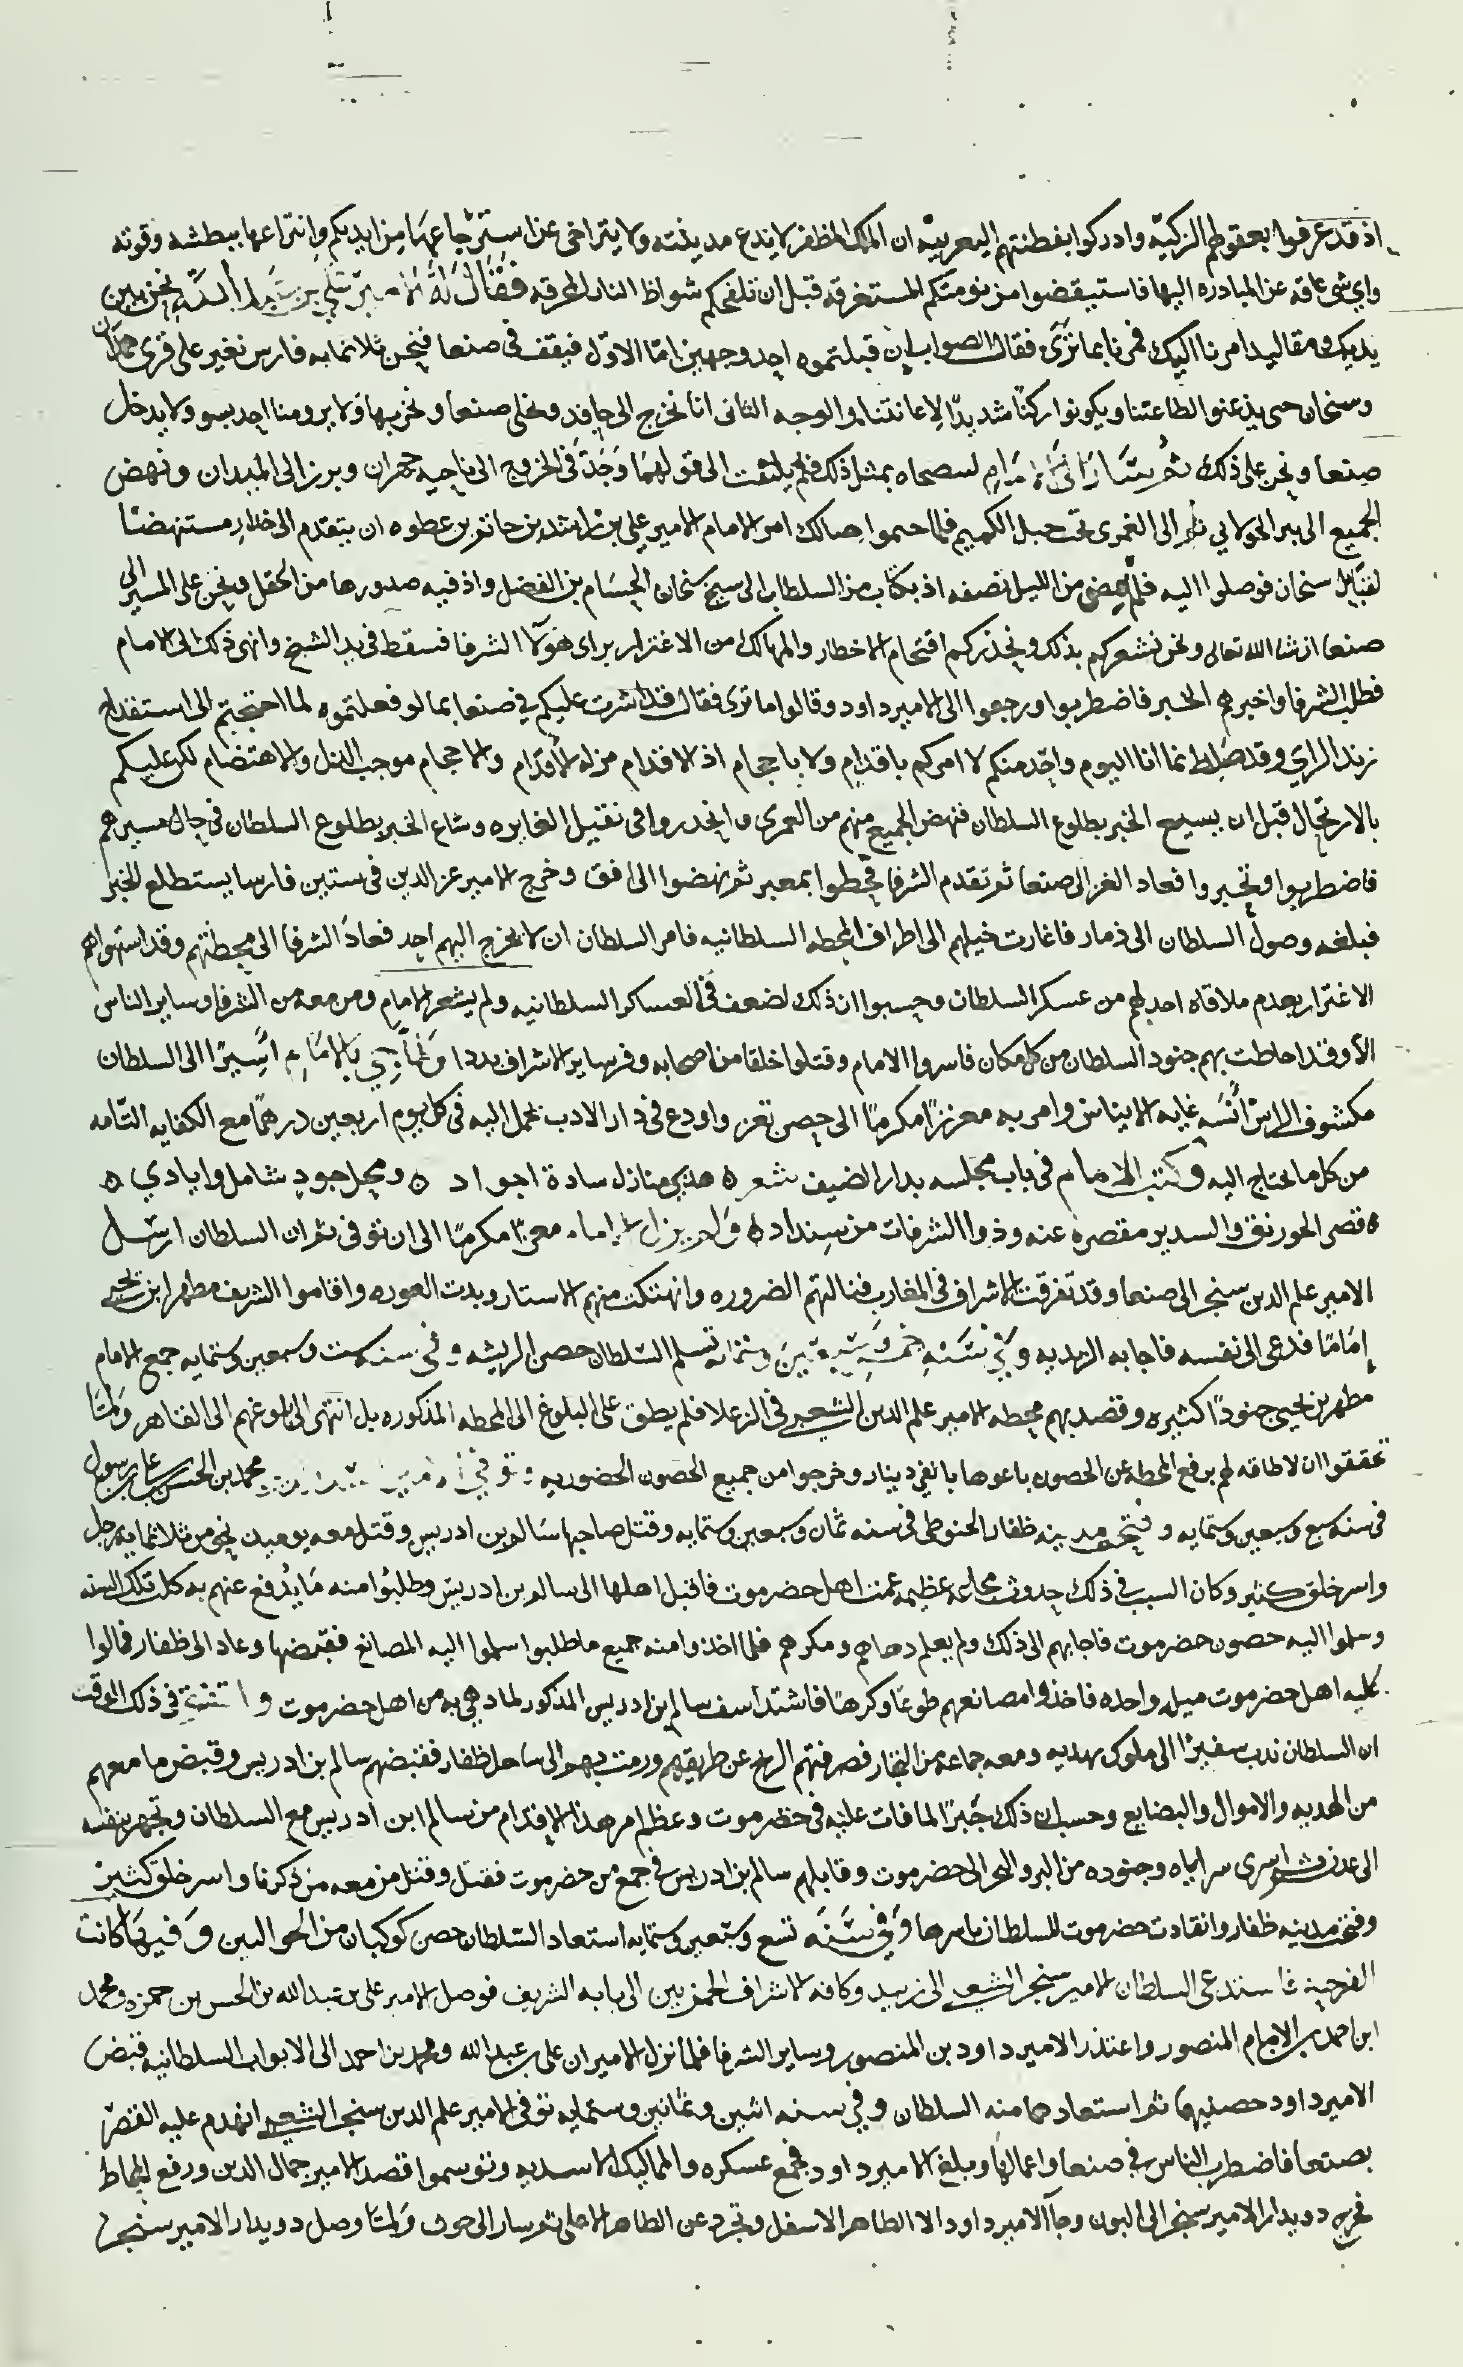 اذ قد عرفوا بعقولهم الزكيه وادركوا بفطنتهم اليعربيه ان الملك المظفر لا يدع مدينته ولا يتراخى عن استرجاعها من ايديكم وانتزاعها ببطشه وقوته
واي شي عاقه عن المبادره اليها فاستيقضوا من نومتكم المستغرقه قبل ان تلفحكم شواظ النار المحرقه فقال له الامير علي بن عبد الله نحن بين
يديك ومقاليد امرنا اليك فمرنا بما ترى فقال الصواب ان قبلتموه احد وجهين اما الاول فيقف في صنعا فنحن ثلاثمايه فارس نغير على قرى همدان
وسنحان حتى يذعنوا لطاعتنا ويكونوا ركنا شديدا لاعانتنا والوجه الثاني انا نخرج الى حافد ونخلي صنعا ونخربها ولا يرومنا احد بسو ولا يدخل
صنعا ونحن على ذلك ثم سار الى الامام لنصحاه بمثل ذلك فلم يلتفت الى قولهما وجد في الخروج الى ناحيه جهران وبرز الى الميدان ونهض
الجميع الى بير الخولاني ثم الى الغمرى تحت جبل الكميم فلما اجتمعوا هنالك امر الامام الامير علي بن راشد بن خاتم بن عطوه ان يتقدم الى خدار مستنهضا
لقبايل سنحان فوصلوا اليه فلم يمض من الليل نصفه اذ بكتاب من السلطان الى شيخ سنحان الحسام بن الفضل واذ فيه صدورها من الحقل ونحن على المسير الى
صنعا ان شا الله تعالى ونحن نشعركم بذلك ونحذركم اقتحام الاخطار والمهالك من الاغترار براى هولا الشرفا فسقط في يد الشيخ وانهى ذلك الى الامام
فطلب الشرفا واخبرهم الخبر فاضطربوا ورجعوا الى الامير داود وقالوا ما ترى فقال قد اشرت عليكم في صنعا بما لو فعلتموه لما احتجتم الى استقداح
زند الراي وقد انما انا اليوم واحد منكم لا امركم باقدام ولا باحجام اذ الاقدام مزله الاقدام والاحجام موجب الذل والاهتضام لكن عليكم
بالارتحال قبل ان يسمع الخبر بطلوع السلطان فنهض الجميع منهم من الغمرى وانحدروا في نقيل الغابره وشاع الخبر بطلوع السلطان في حال مسيرهم
فاضطربوا وتحيروا فعاد الغز الى صنعا ثم تقدم الشرفا فحطوا بمعبر ثم نهضوا الى افق وخرج الامير عز الدين في ستين فارسا يستطلع الخبر
فبلغه وصول السلطان الى ذمار فاغارت خيلهم الى اطراف المحطه السلطانيه فامر السلطان ان لا يخرج اليهم احد فعاد الشرفا الى محطتهم وقد استهواهم
الاغترار بعدم ملاقاه احد لهم من عسكر السلطان وحسبوا ان ذلك لضعف في العساكر السلطانيه ولم يشعر الامام ومن معه من الشرفا وساير الناس
الا وقد احاطت بهم جنود السلطان من كل مكان فاسروا الامام وقتلوا خلقا من اصحابه وفر ساير الاشراف بددا ولما جي بالامام اسيرا الى السلطان
مكشوف الراس انسه غايه الايناس وامر به معززا مكرما الى حصن تعز واودع في دار الادب يحمل اليه في كل يوم اربعين درهما مع الكفايه التامه
من كل ما يحتاج اليه وكتب الامام في باب مجلسه بدار الضيف شعر ه هذي منازل سادة اجواد ه ومحل جود شامل وايادي ه
ه قصر الخورنق والسدير مقصره عنه وذوا الشرفات من سنداد ه ولم يزل الامام معززا مكرما الى ان توفى ثم ان السلطان ارسل
الامير علم الدين سنجر الى صنعا وقد تفرقت الاشراف في المغارب فنالتهم الضروره وانهتكت منهم الاستار وبدت العوره واقاموا الشريف مطهر ابن يحيى
اماما فدعى الى نفسه فاجابه الزيديه وفي سنه خمس وسبعين وستمائه تسلم السلطان حصن الريشه وفي سنه ست وسبعين وستمايه جمع الامام
مطهر بن يحيى جنودا كثيره وقصد بهم محطه الامير علم الدين الشعبي في الزعلا فلم يطق على البلوغ الى المحطه المذكوره بل انتهى الى بلوغهم الى القاهر ولما
تحققوا ان لا طاقه لهم برفع المحطه عن الحصون باعوها بالفي دينار وخرجوا من جميع الحصون الحضوريه وتوفي الامير محمد بن الحسن بن علي بن رسول
في سنه سبع وسبعين وستمايه وفتحت مدينه ظفار الحبوظي في سنه ثمان وسبعين وستمايه وقتل صاحبها سالم بن ادريس وقتل معه يوميد نحو من ثلاثمايه رجل
واسر خلق كثير وكان السبب في ذلك حدوث مجاعه عظيمه عمت اهل حضرموت فاقبل اهلها الى سالم بن ادريس وطلبوا منه ما يدفع عنهم به كل تلك السنه
وسلموا اليه حصون حضرموت فاجابهم الى ذلك ولم يعلم دهاهم ومكرهم فلما اخذوا منه جميع ما طلبوا سلموا اليه المصانع فقبضها وعاد الى ظفار فمالوا
عليه اهل حضرموت ميله واحده فاخذوا مصانعهم طوعا وكرها فاشتد اسف سالم ابن ادريس المذكور لما دهي به من اهل حضرموت واتفق في ذلك الوقت
ان السلطان ندب سفيرا الى ملوك بهديه ومعه جماعه من التجار فصرفتهم الريح عن طريقهم ورمت بهم الى ساحل ظفار فقبضهم سالم بن ادريس وقبض ما معهم
من الهديه والاموال والبضايع وحسب ان ذلك جبرا لما فات عليه في حظرموت وعظم امر هذا الاقدام من سالم ابن ادريس مع السلطان وتجهز بنفسه
الى عدن ثم اسرى سراياه وجنوده من البر والبحر الى حضرموت وقابلهم سالم بن ادريس في جمع من حضرموت فقتل وقتل من معه من ذكرنا واسر خلق كثير
وفتحت مدينه ظفار وانقادت حضرموت للسلطان باسرها وفي سنه تسع وسبعين وستمايه استعاد السلطان حصن كوكبان من وفيها كانت
الفرحه فاستدعى السلطان الامير سنجر الشعبي الى زبيد وكافه الاشراف الحمزيين الى بابه الشريف فوصل الامير علي بن عبد الله بن الحسن بن حمزه ومحمد
ابن احمد بن الامام المنصور واعتذر الامير داود بن المنصور وساير الشرفا فلما نزل الاميران علي بن عبد الله ومحمد بن احمد الى الابواب السلطانيه قبض
الامير داود حصنيهما ثم استعادهما منه السلطان وفي سنه اثنين وثمانين وستمايه توفى الامير علم الدين سنجر الشعبي انهدم عليه القصر
بصنعا فاضطرب الناس في صنعا واعمالها وبلغ الامير داود فجمع عسكره والمماليك الاسديه وتوسموا قصد الامير جمال الدين ورفع المحاط
فخرج دويدار الامير سنجر الى البون وجا الامير داود الا الظاهر الاسفل وتجرد عن الظاهر الاعلى ثم سار الى حوث ولما وصل دويدار الامير سنجر